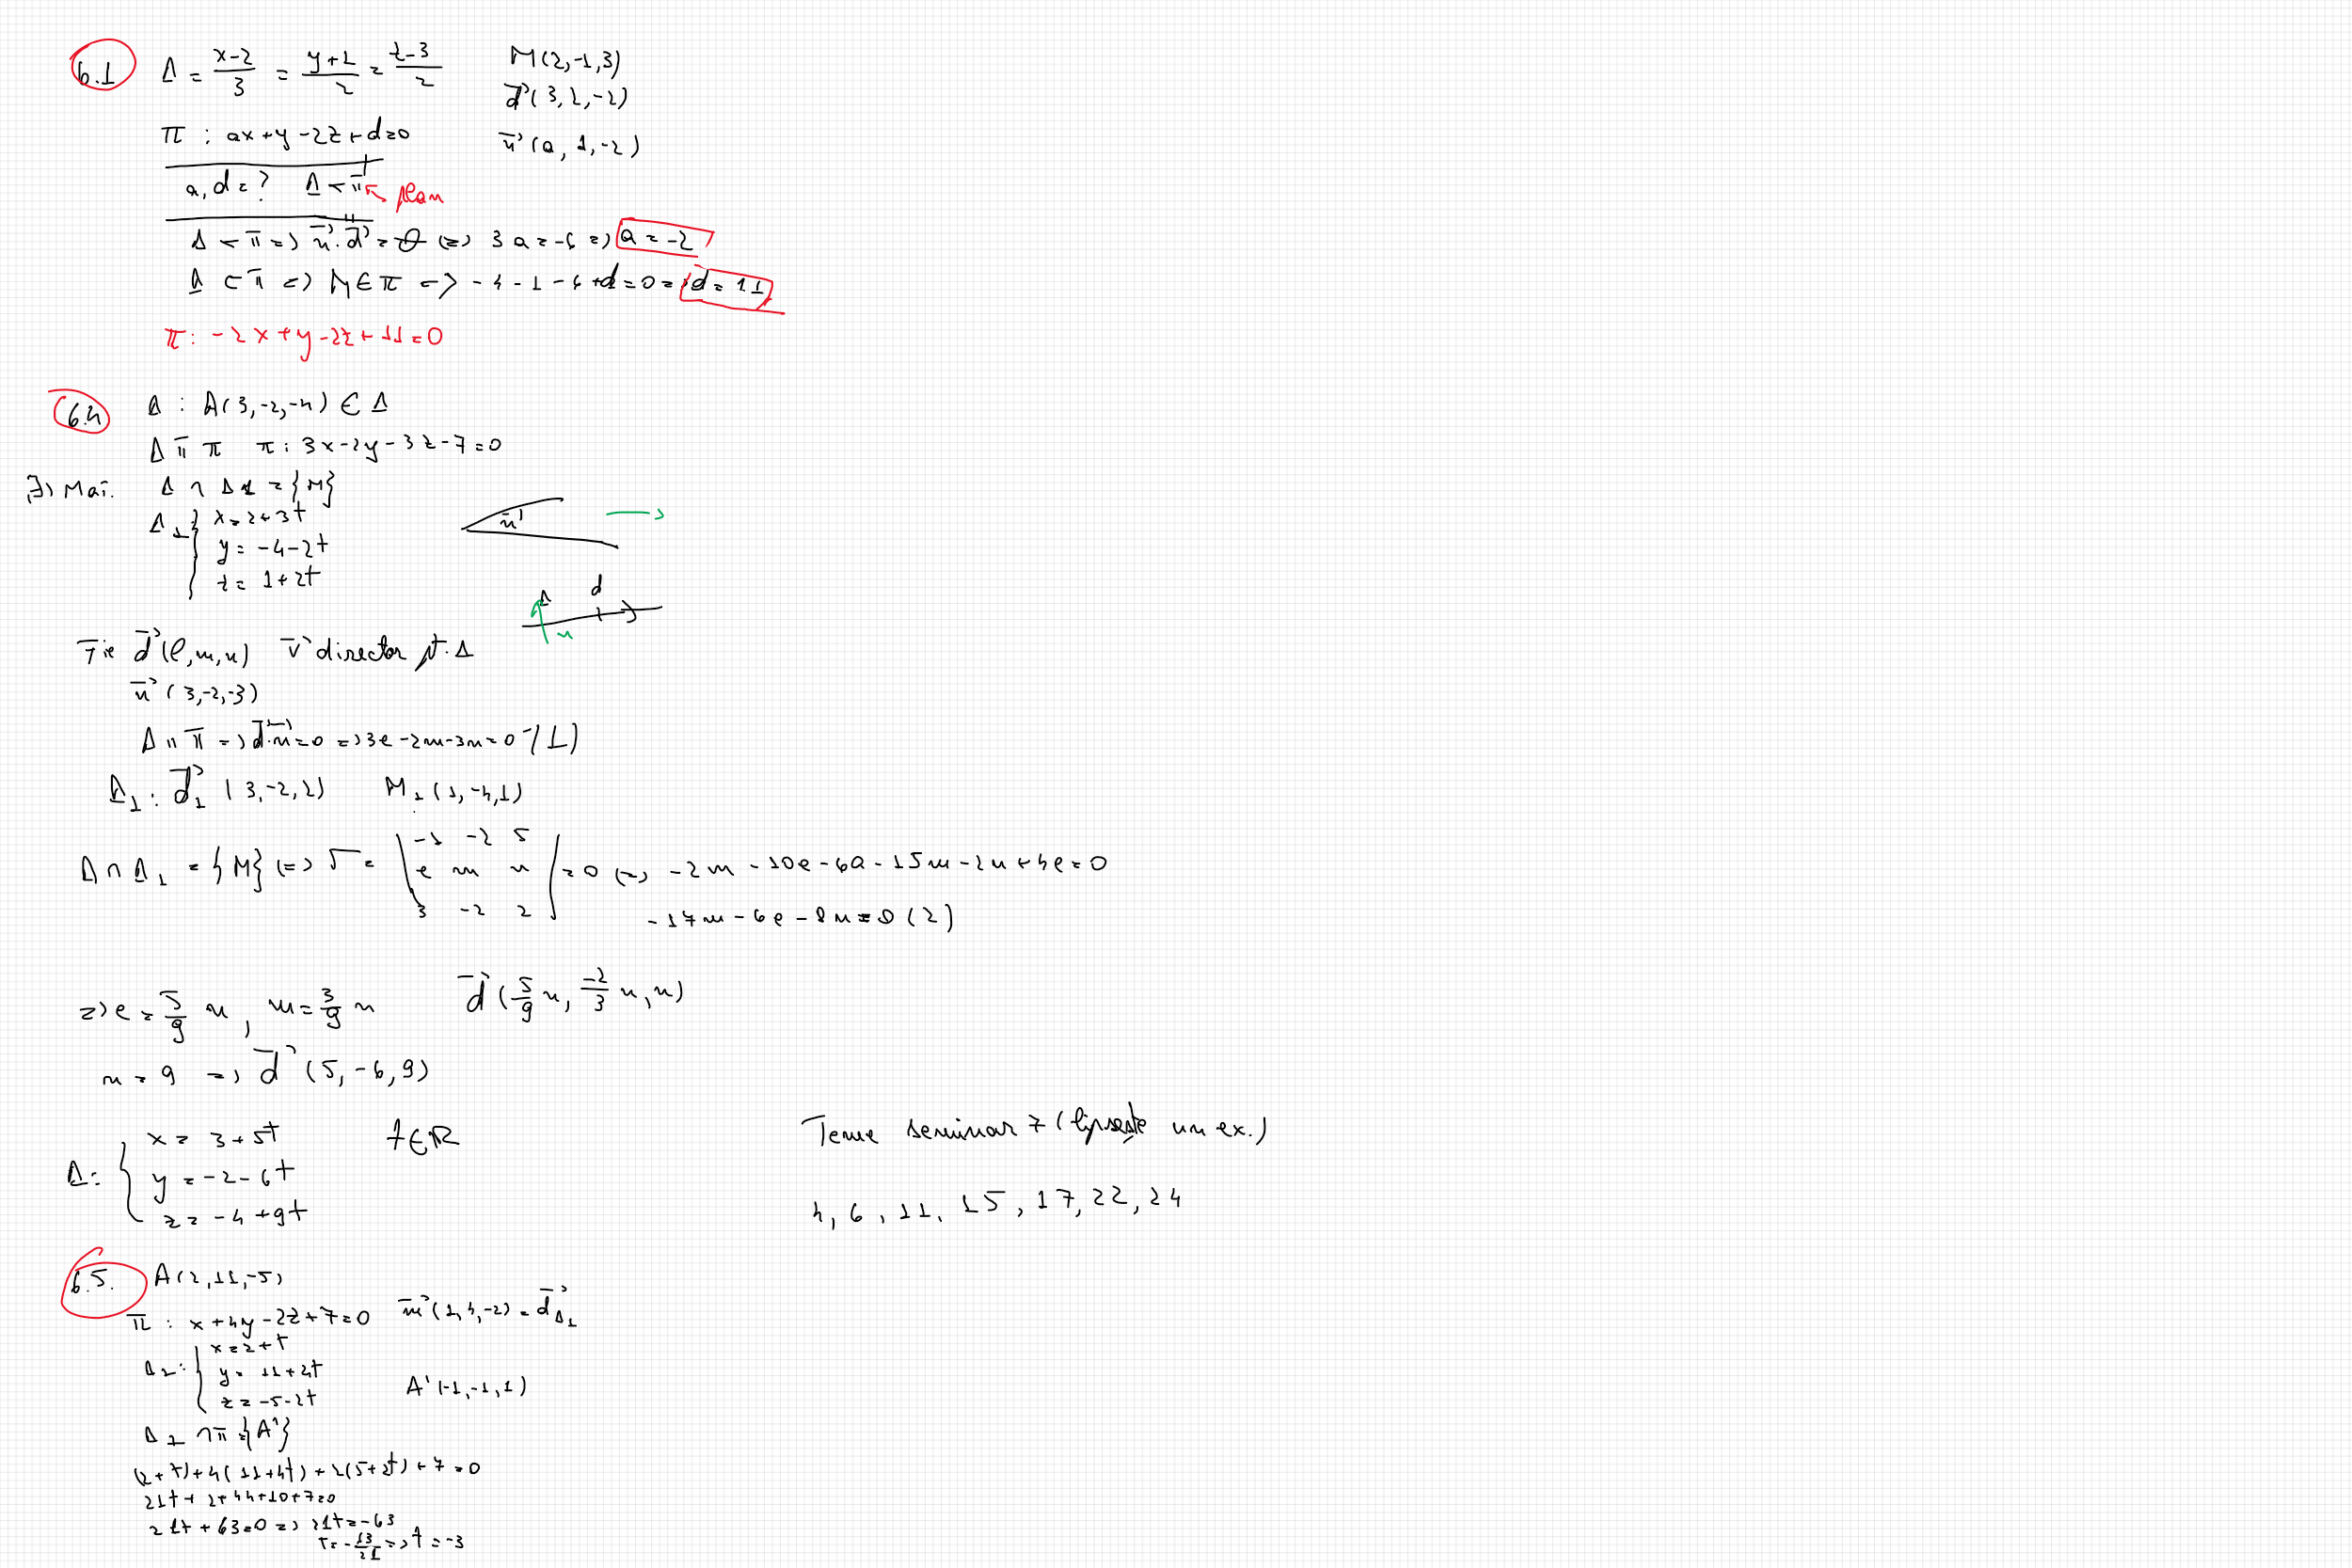 6.1 Δ = x-2/3 = y+1/2 = z-3/2 M(2,-1,3)
d⃗(3,2,-2)
π : ax+y-2z+d=0 n⃗(a,1,-2)
a,d=? Δ⊂π plan
Δ⊂π => n⃗·d⃗=0 (=) 3a=-6 => a=-2
Δ⊂π => M∈π => -4-1-6+d=0 => d=11
π: -2x+y-2z+11=0
6.4 Δ : A(3,-2,-4) ∈ Δ
Δ || π π: 3x-2y-3z-7=0
Δ ∩ Δ1 = {M}
Δ1 { x=2+3t
y=-4-2t
z=1+2t
n⃗
Δ d
n
Fie d⃗(l,m,n) v⃗ director pt. Δ
n⃗(3,-2,-3)
Δ || π => d⃗·n⃗=0 => 3l-2m-3n=0 (1)
Δ1: d⃗1(3,-2,2) M1(2,-4,1)
Δ∩Δ1 = {M} (=>
| -1 -2 5
l m n
3 -2 2 | =0 (=> -2m-10l-6n-15m-2n+4l=0
-17m-6l-8n=0 (2)
=> l=5/9 n, m=3/9 n d⃗(5/9 n, -2/3 n, n)
n=9 => d⃗(5,-6,9)
Δ: { x=3+5t t∈ℝ
y=-2-6t
z=-4+9t
Teme seminar 7 (lipsește un ex.)
4, 6, 11, 15, 17, 22, 24
6.5. A(2,11,-5)
π : x+4y-2z+7=0 n⃗(1,4,-2) = d⃗Δ1
Δ1: { x=2+t
y=11+4t
z=-5-2t
A'(-1,-1,1)
Δ1 ∩π={A'}
(2+t)+4(11+4t)+2(5+2t)+7=0
21t+2+44+10+7=0
21t+63=0 => 21t=-63
t=-63/21 => t=-3